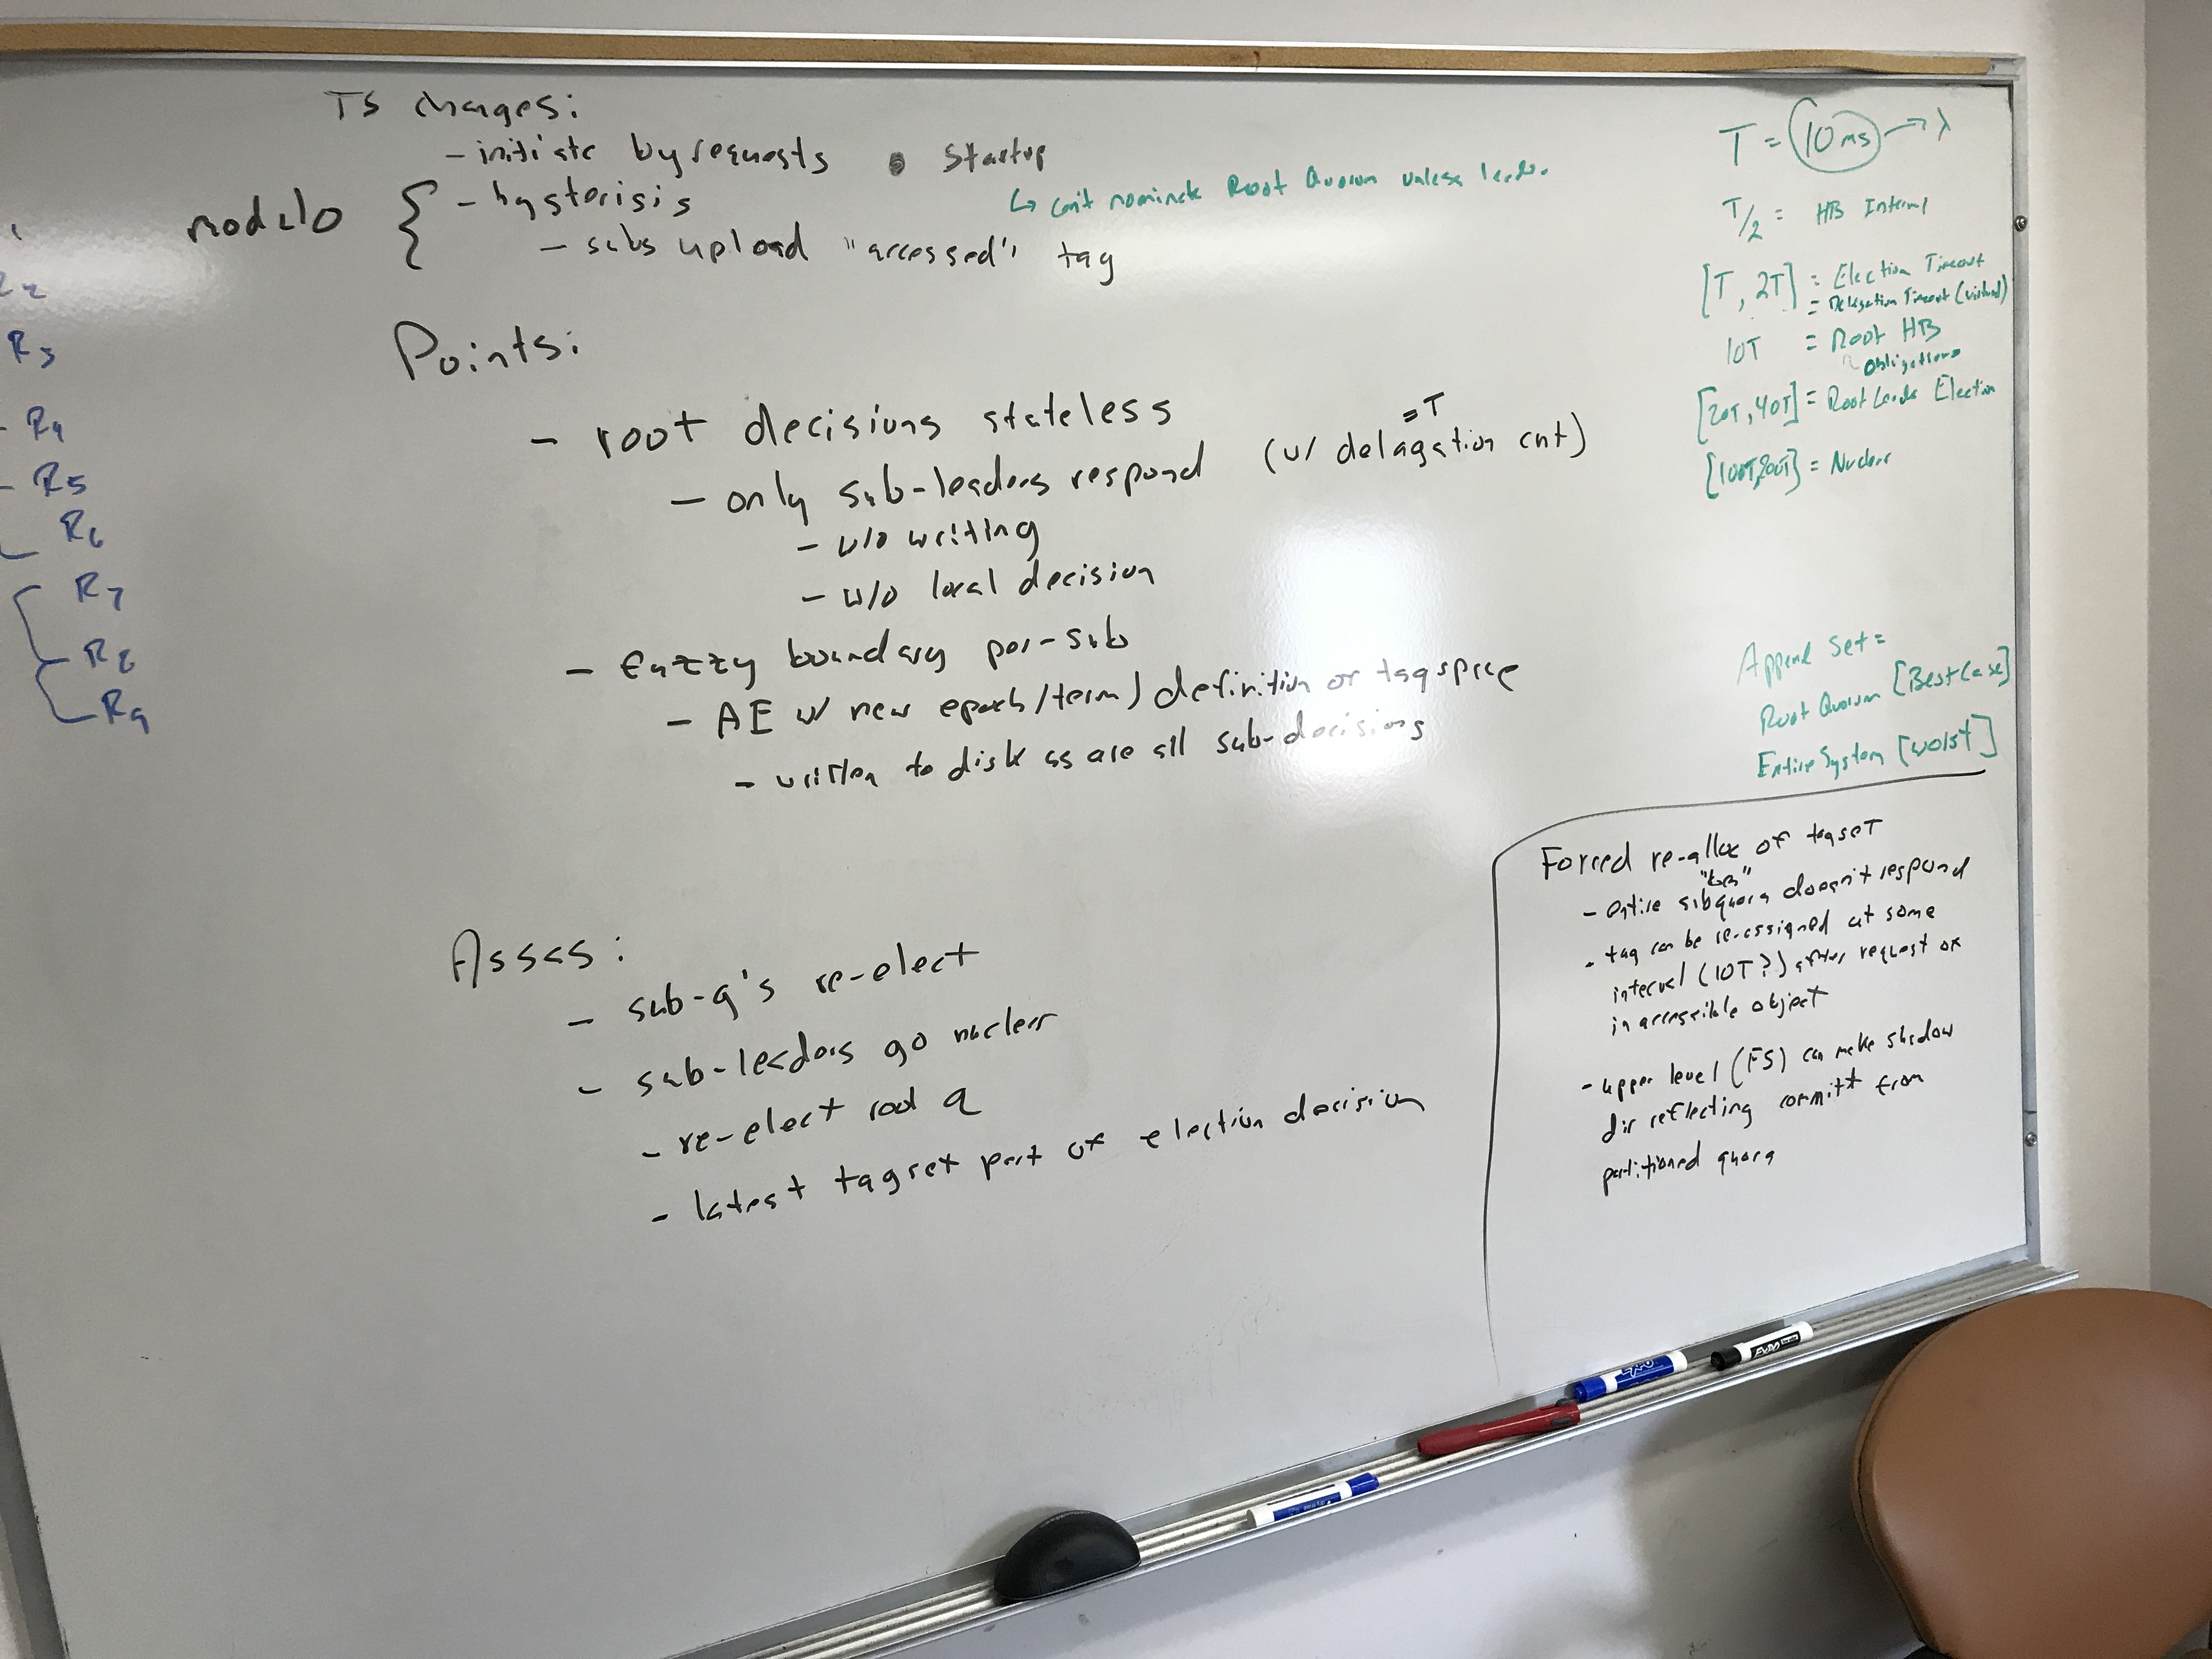 TS changes:
- initiate by requests
• Startup
modulo { - hysterisis
↳ can't nominate Root Quorum unless leader
- subs upload "accessed" tag
Points:
- root decisions stateless
- only sub-leaders respond (w/ delagation cnt)
=T
- w/o writing
- w/o local decision
- Fuzzy boundary per-sub
- AE w/ new epoch/term/definition or tagspace
- written to disk as are all sub-decisions
- sub-q's re-elect
- sub-leaders go nuclear
- re-elect root q
- latest tagset part of election decision
R3
R4
R5
R6
R7
R8
R9
T = 10ms → λ
T/2 = HB Interval
[T, 2T] = Election Timeout
= Delegation Timeout (virtual)
10T = Root HB
Obligations
[20T, 40T] = Root Leader Election
[100T, 200T] = Nuclear
Append Set =
Root Quorum [Best Case]
Entire System [worst]
Forced re-alloc of tagset
- entire subquora doesn't respond
- tag can be re-assigned at some
interval (10T?) after request of
inaccessible object
- upper level (FS) can make shadow
dir reflecting committ from
partitioned quora
EXPO
EXPO